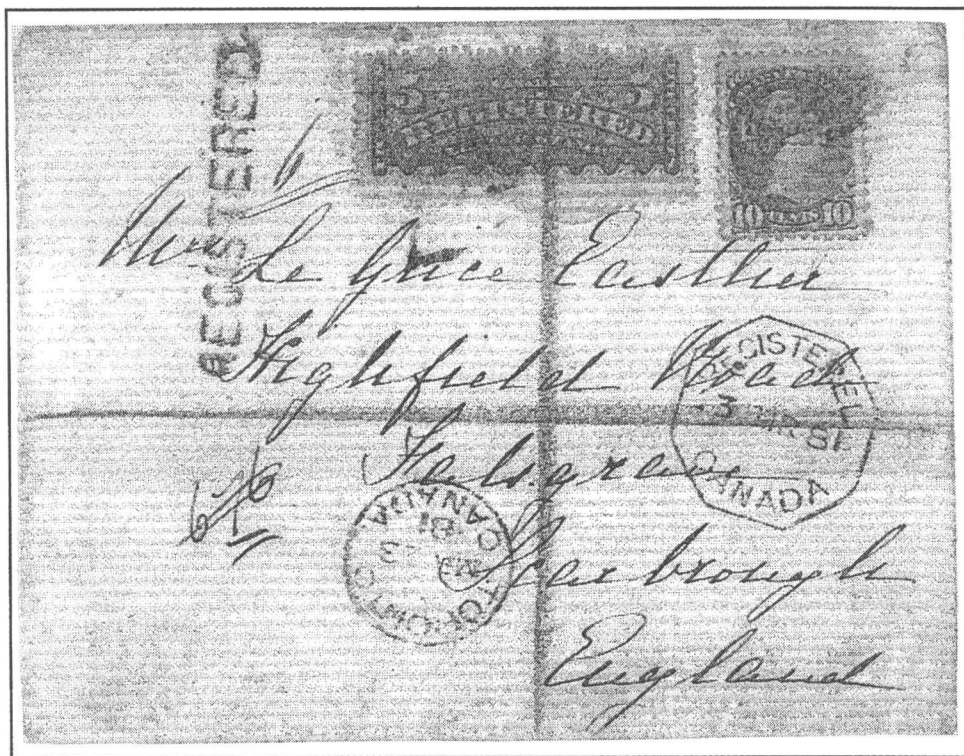 REGISTERED.
5 5
REGISTERED
10 CENTS 10
Le Grice Easther
Highfield Road
Falsgrave
Scarbrough
England
REGISTERED
3 MR 81
CANADA
TORONTO
MR 3
81
CANADA